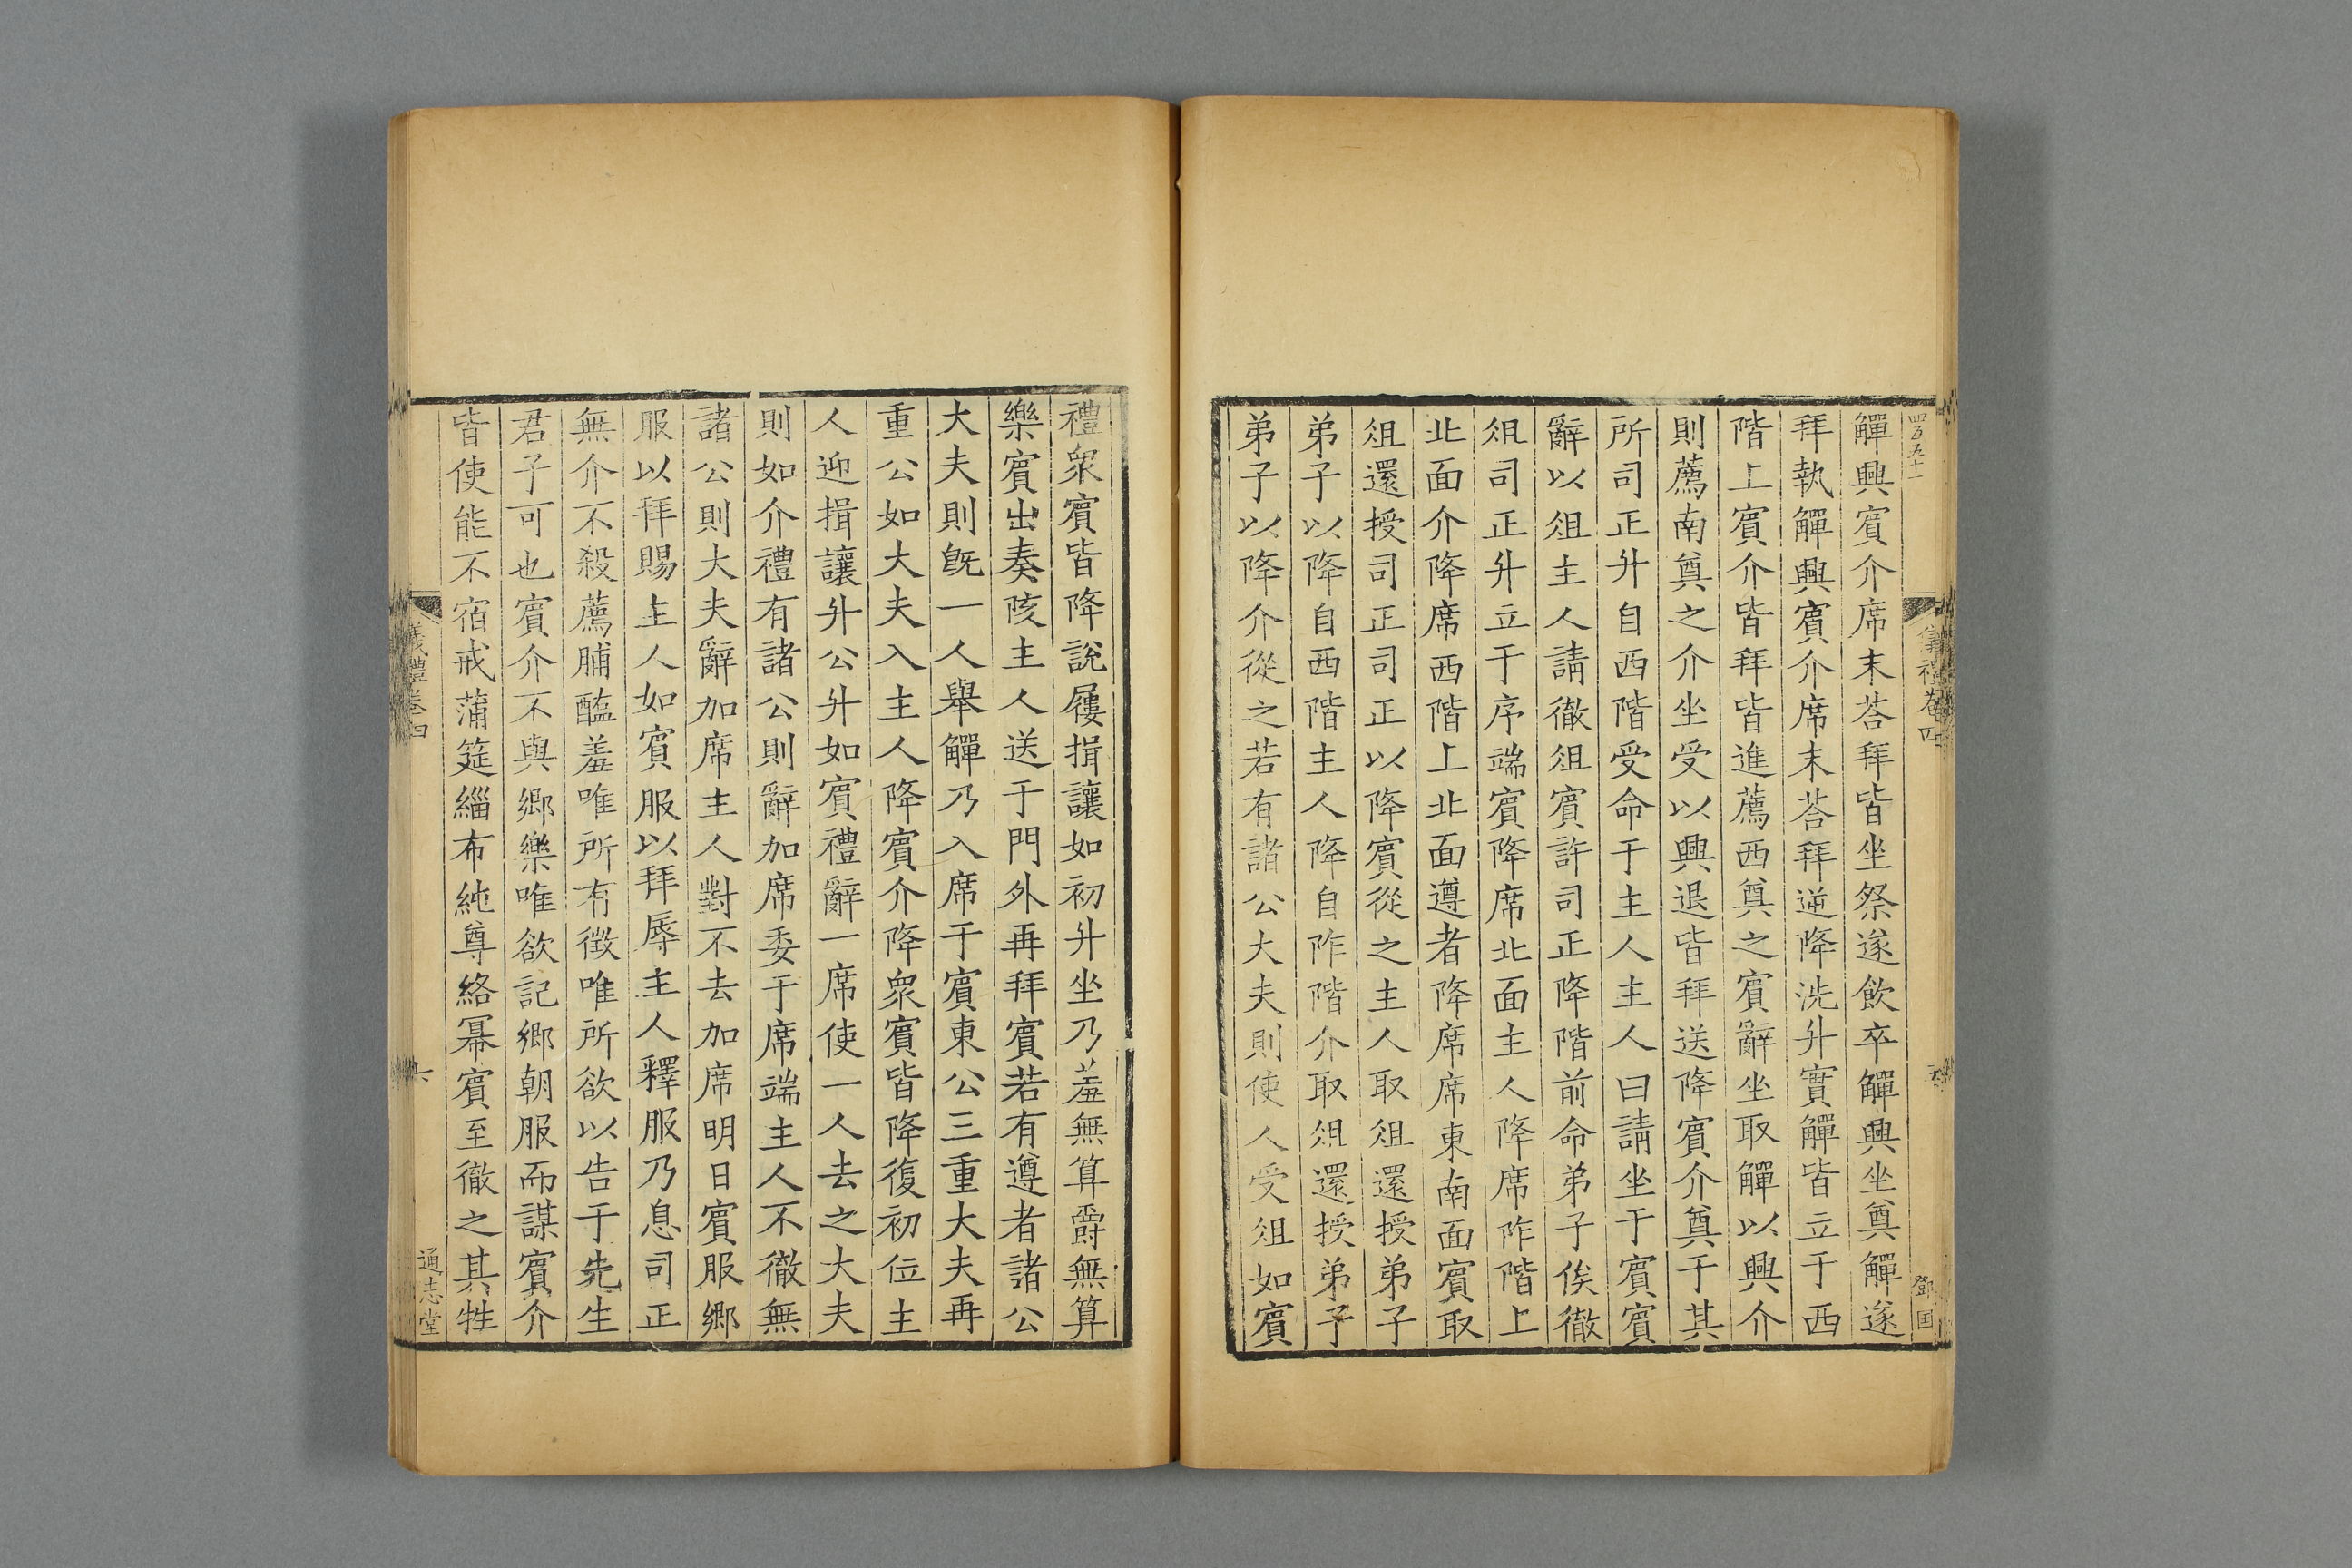 四百五十一
儀禮卷四
鄧国
觶興賓介席末荅拜皆坐祭遂飲卒觶興坐奠觶遂
拜執觶興賓介席末荅拜逆降洗升實觶皆立于西
階上賓介皆拜皆進薦西奠之賓辭坐取觶以興介
則薦南奠之介坐受以興退皆拜送降賓介奠于其
所司正升自西階受命于主人主人曰請坐于賓賓
辭以俎主人請徹俎賓許司正降階前命弟子俟徹
俎司正升立于序端賓降席北面主人降席阼階上
北面介降席西階上北面遵者降席席東南面賓取
俎還授司正司正以降賓從之主人取俎還授弟子
弟子以降自西階主人降自阼階介取俎還授弟子
弟子以降介從之若有諸公大夫則使人受俎如賓
禮衆賓皆降說屨揖讓如初升坐乃羞無算爵無算
樂賓出奏陔主人送于門外再拜賓若有遵者諸公
大夫則旣一人舉觶乃入席于賓東公三重大夫再
重公如大夫入主人降賓介降衆賓皆降復初位主
人迎揖讓升公升如賓禮辭一席使一人去之大夫
則如介禮有諸公則辭加席委于席端主人不徹無
諸公則大夫辭加席主人對不去加席明日賓服鄉
服以拜賜主人如賓服以拜辱主人釋服乃息司正
無介不殺薦脯醢羞唯所有徵唯所欲以告于先生
君子可也賓介不與鄉樂唯欲記鄉朝服而謀賓介
皆使能不宿戒蒲筵緇布純尊綌冪賓至徹之其牲
儀禮卷四
六
通志堂